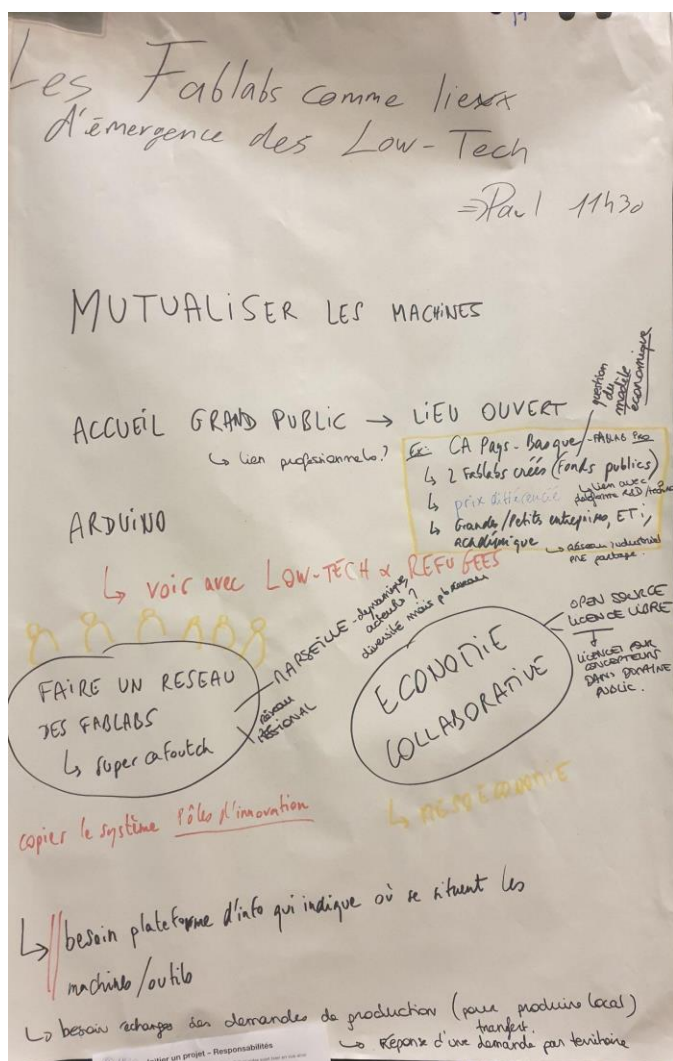 Les Fablabs comme lieux
d'émergence des Low-Tech
⇒ Paul 11h30
MUTUALISER LES MACHINES
ACCUEIL GRAND PUBLIC → LIEU OUVERT
↳ lien professionnels ?
question du modèle économique
Ex: CA Pays-Basque - FABLAB PRO
↳ 2 Fablabs créés (Fonds publics)
↳ prix différencié
↳ lien avec plateforme R&D
↳ Grandes/Petits entreprises, ETI,
académique
↳ réseau industriel
PME partage.
ARDUINO
↳ voir avec LOW-TECH & REFUGEES
FAIRE UN RESEAU
DES FABLABS
↳ super cafoutch
MARSEILLE - dynamique,
acteurs ?
diversité mais pb réseau
réseau
RÉGIONAL
ECONOMIE
COLLABORATIVE
OPEN SOURCE
LICENCE LIBRE
LICENCES POUR
CONCEPTEURS
DANS DOMAINE
PUBLIC.
↳ MESO ECONOMIE
copier le système Pôles d'innovation
↳ besoin plateforme d'info qui indique où se situent les
machines/outils
↳ besoin échanges des demandes de production (pour produire local)
transfert.
↳ Réponse d'une demande par territoire
un projet – Responsabilités